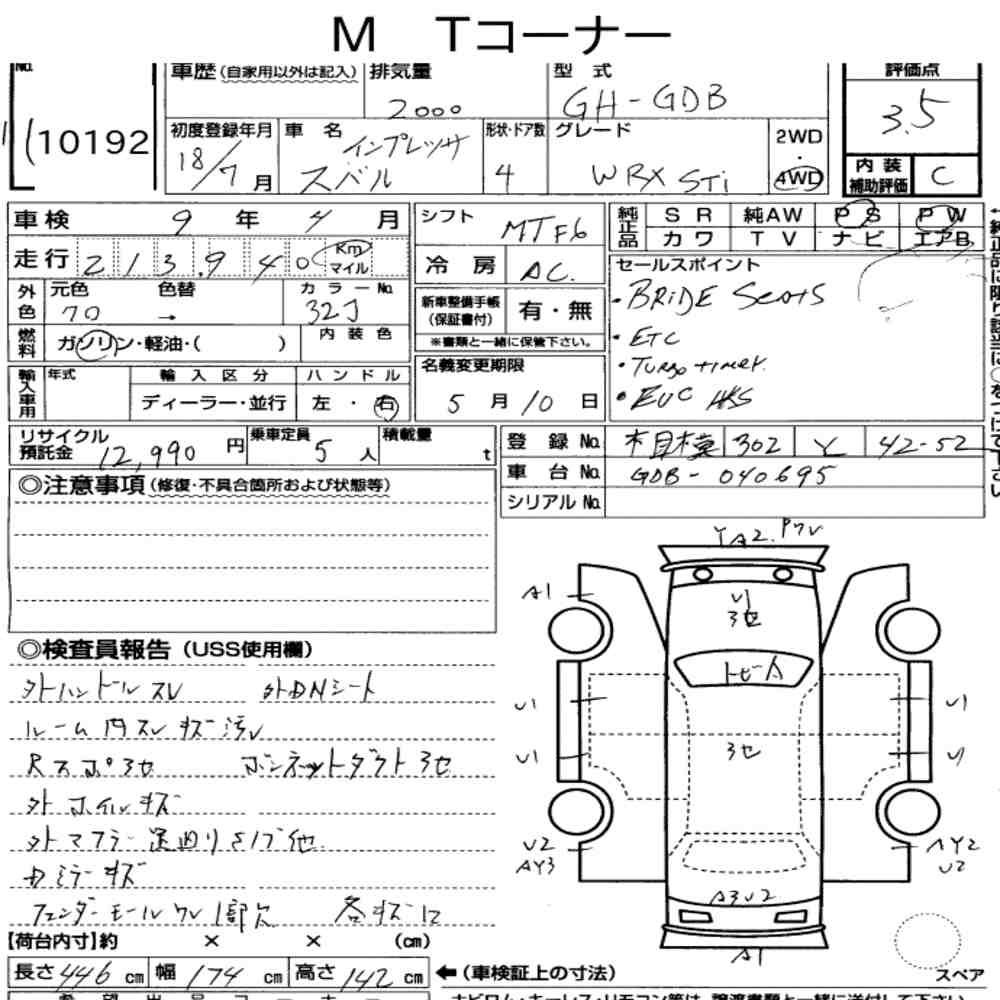 M Tコーナー
No.
10192
車歴 (自家用以外は記入)
排気量
2000
型式
GH-GDB
評価点
3.5
初度登録年月
18/7月
車名
インプレッサ
スバル
形状・ドア数
4
グレード
WRX STi
2WD
・
4WD
内装
補助評価
C
車検 9年 4月
走行 213.940 Km
マイル
外色
元色
70
色替
→
カラーNo.
32J
燃料
ガソリン・軽油・( )
内装色
輸入車用
年式
輸入区分
ディーラー・並行
ハンドル
左・右
シフト
MTF6
冷房
AC.
新車整備手帳
(保証書付)
有・無
※書類と一緒に保管下さい。
名義変更期限
5月10日
純正品
SR 純AW PS PW
カワ TV ナビ エアB
セールスポイント
・BRIDE Seats
・ETC
・Turbo timer.
・EVC HKS
リサイクル
預託金
12,990円
乗車定員
5人
積載量
t
登録No. 302 42-52
車台No. GDB-040695
シリアルNo.
◎注意事項(修復・不具合箇所および状態等)
◎検査員報告(USS使用欄)
外ハンドルスレ 外DNシート
ルーム内スレキズ汚レ
Rスポ3セ ボンネットダクト3セ
外ホイルキズ
外マフラー足回りサブ他
カミラーキズ
フェンダーモールワレ1部欠 各キズ
【荷台内寸】約 × × (cm)
長さ446cm 幅174cm 高さ142cm
←(車検証上の寸法)
YA2.Pワレ
A1
U1
3セ
トビA
U1
U1
3セ
U1
U1
U2
AY3
AY2
U2
A3U2
A1
スペア